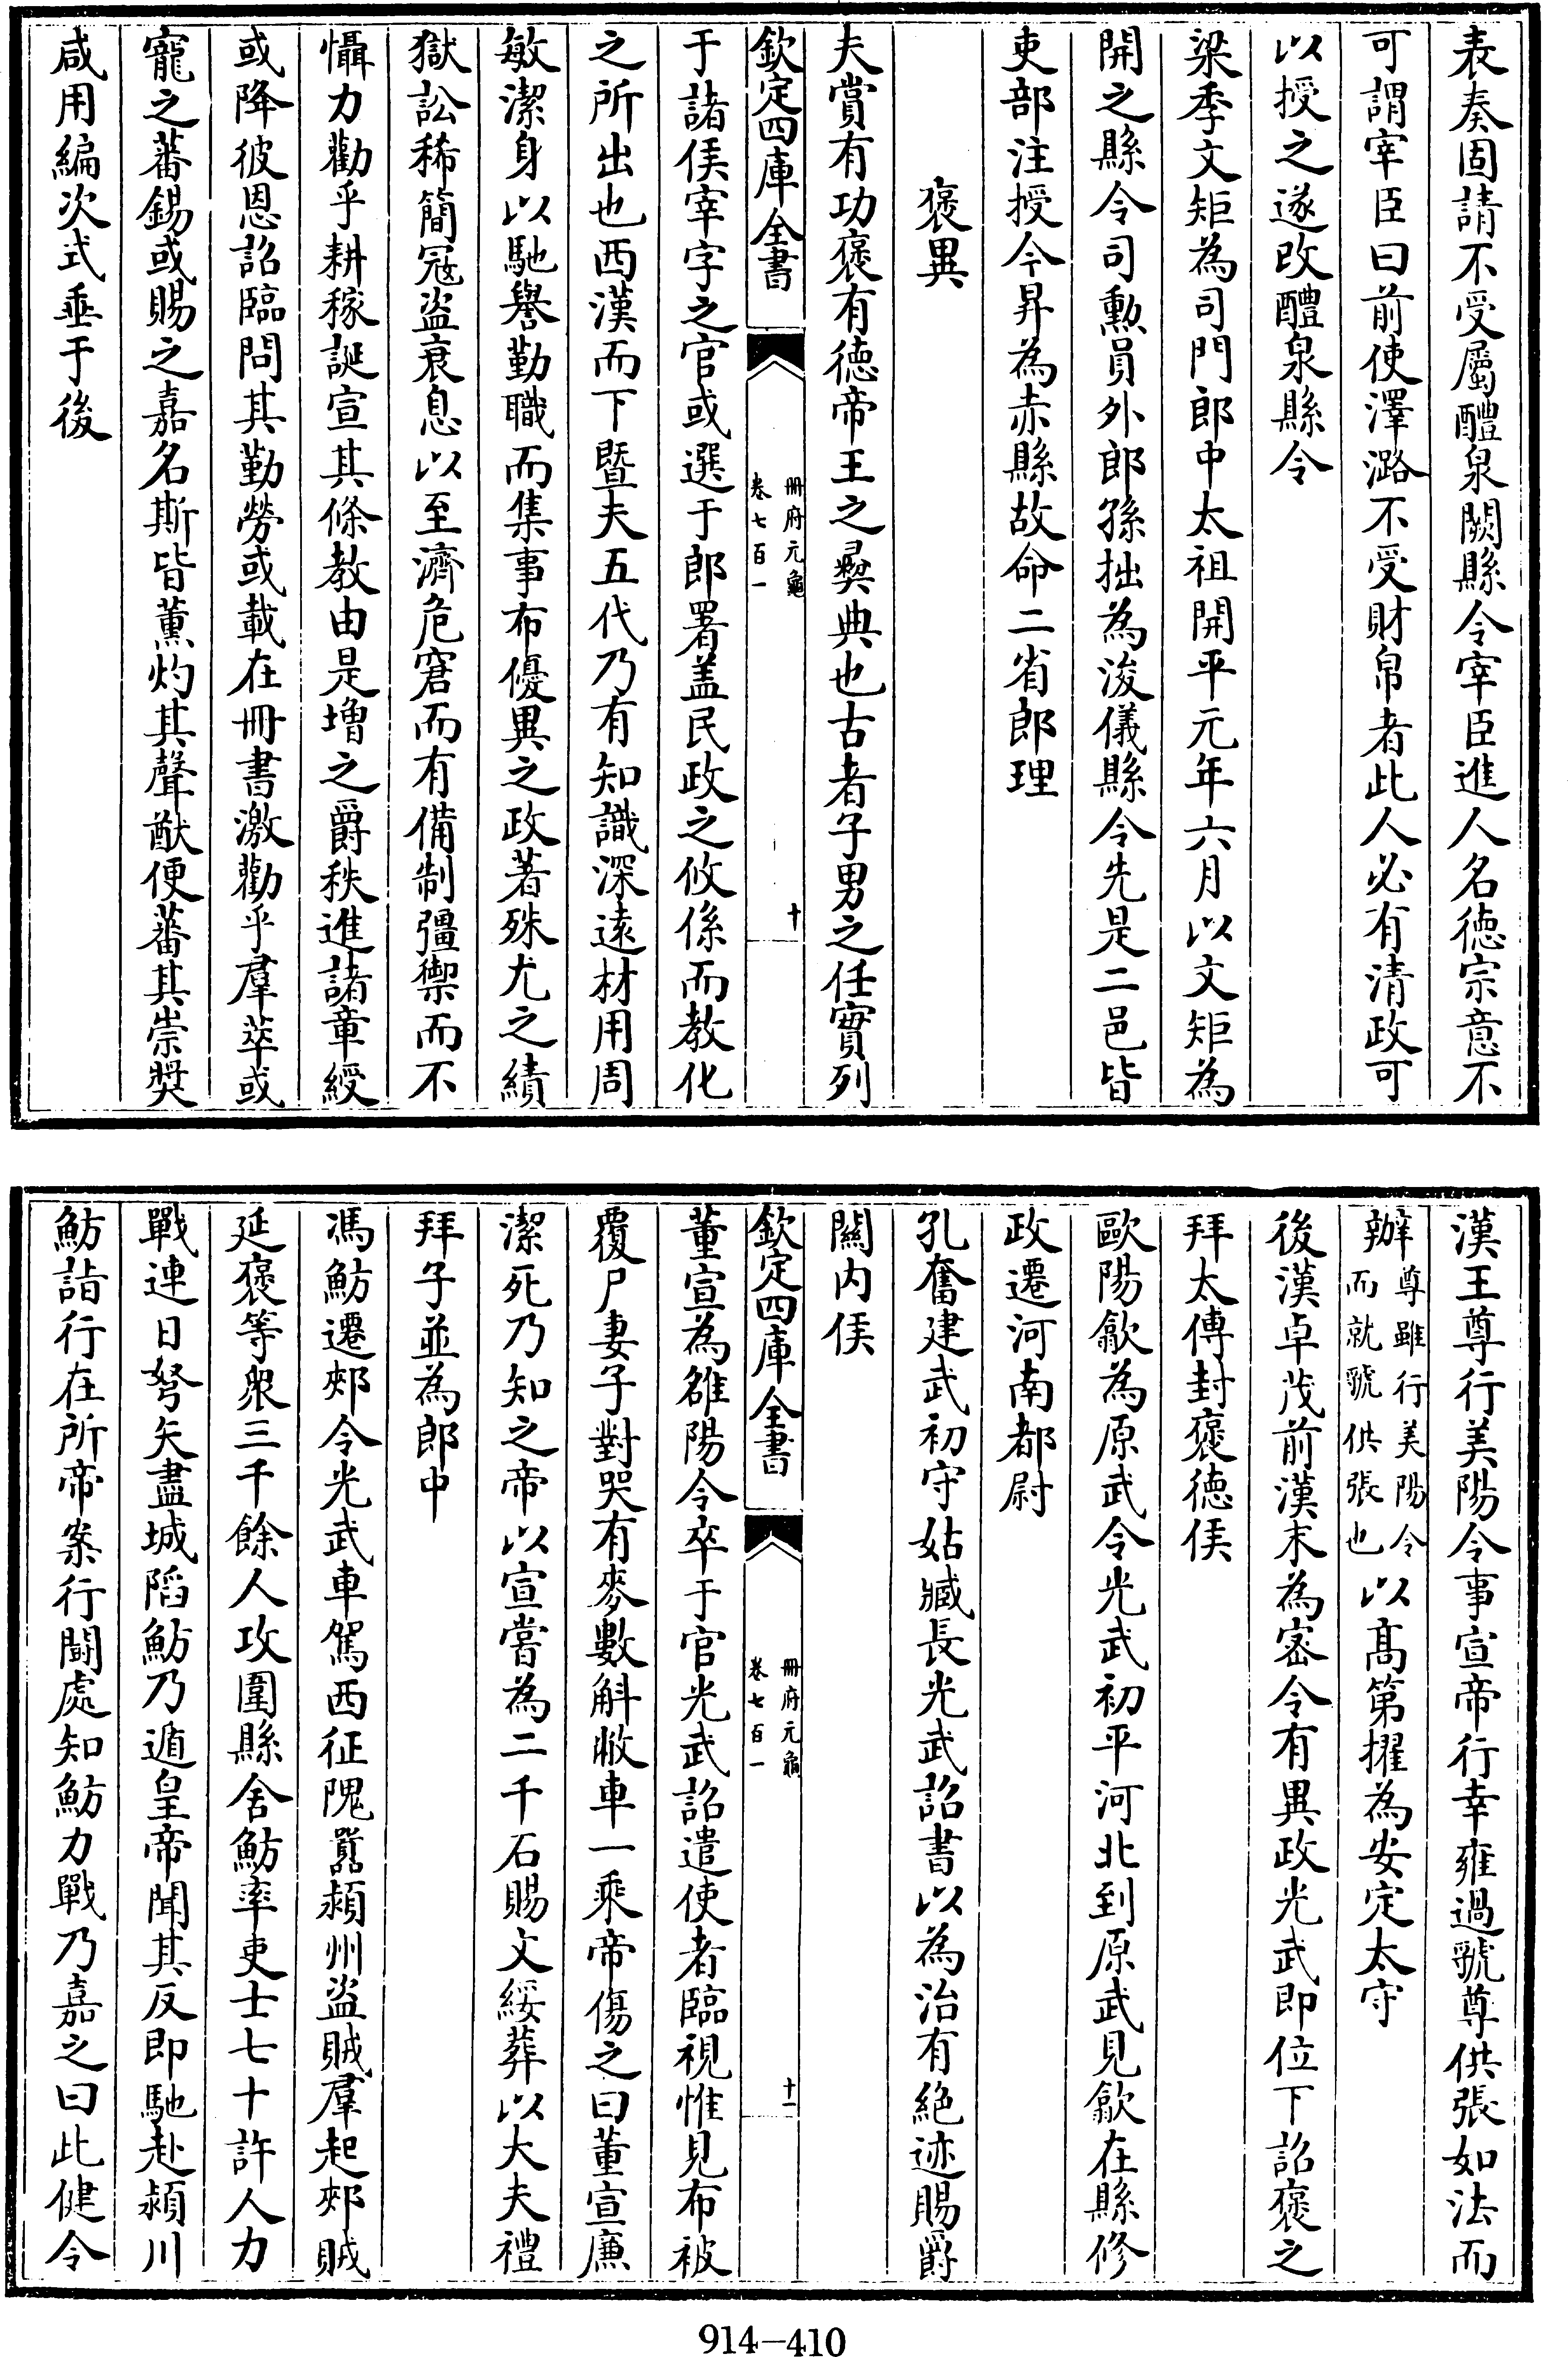 表奏固請不受屬醴泉闕縣令宰臣進人名徳宗意不
可謂宰臣曰前使澤潞不受財帛者此人必有清政可
以授之遂改醴泉縣令
梁季文矩為司門郎中太祖開平元年六月以文矩為
開之縣令司勲員外郎孫拙為浚儀縣令先是二邑皆
吏部注授今昇為赤縣故命二省郎理
褒異
夫賞有功褒有徳帝王之彞典也古者子男之任實列
欽定四庫全書
冊府元龜
卷七百一
十
于諸侯宰字之官或選于郎署盖民政之攸係而教化
之所出也西漢而下暨夫五代乃有知識深遠材用周
敏潔身以馳譽勤職而集事布優異之政著殊尤之績
獄訟稀簡冦盗衰息以至濟危窘而有備制彊禦而不
懾力勸乎耕稼誕宣其條教由是増之爵秩進諸章綬
或降彼恩詔臨問其勤勞或載在冊書激勸乎羣萃或
寵之蕃錫或賜之嘉名斯皆薫灼其聲猷便蕃其崇奬
咸用編次式垂于後
漢王尊行美陽令事宣帝行幸雍過虢尊供張如法而
辦尊雖行美陽令而就虢供張也以髙第擢為安定太守
後漢卓茂前漢末為宻令有異政光武即位下詔褒之
拜太傅封褒徳侯
歐陽歙為原武令光武初平河北到原武見歙在縣修
政遷河南都尉
孔奮建武初守姑臧長光武詔書以為治有絶迹賜爵
闗内侯
欽定四庫全書
冊府元龜
卷七百一
十一
董宣為雒陽令卒于官光武詔遣使者臨視惟見布被
覆尸妻子對哭有麥數斛敝車一乘帝傷之曰董宣廉
潔死乃知之帝以宣嘗為二千石賜文綬葬以大夫禮
拜子並為郎中
馮魴遷郟令光武車駕西征隗囂潁州盗賊羣起郟賊
延褒等衆三千餘人攻圍縣舍魴率吏士七十許人力
戰連日弩矢盡城陷魴乃遁皇帝聞其反即馳赴潁川
魴詣行在所帝案行鬬處知魴力戰乃嘉之曰此健令
914-410